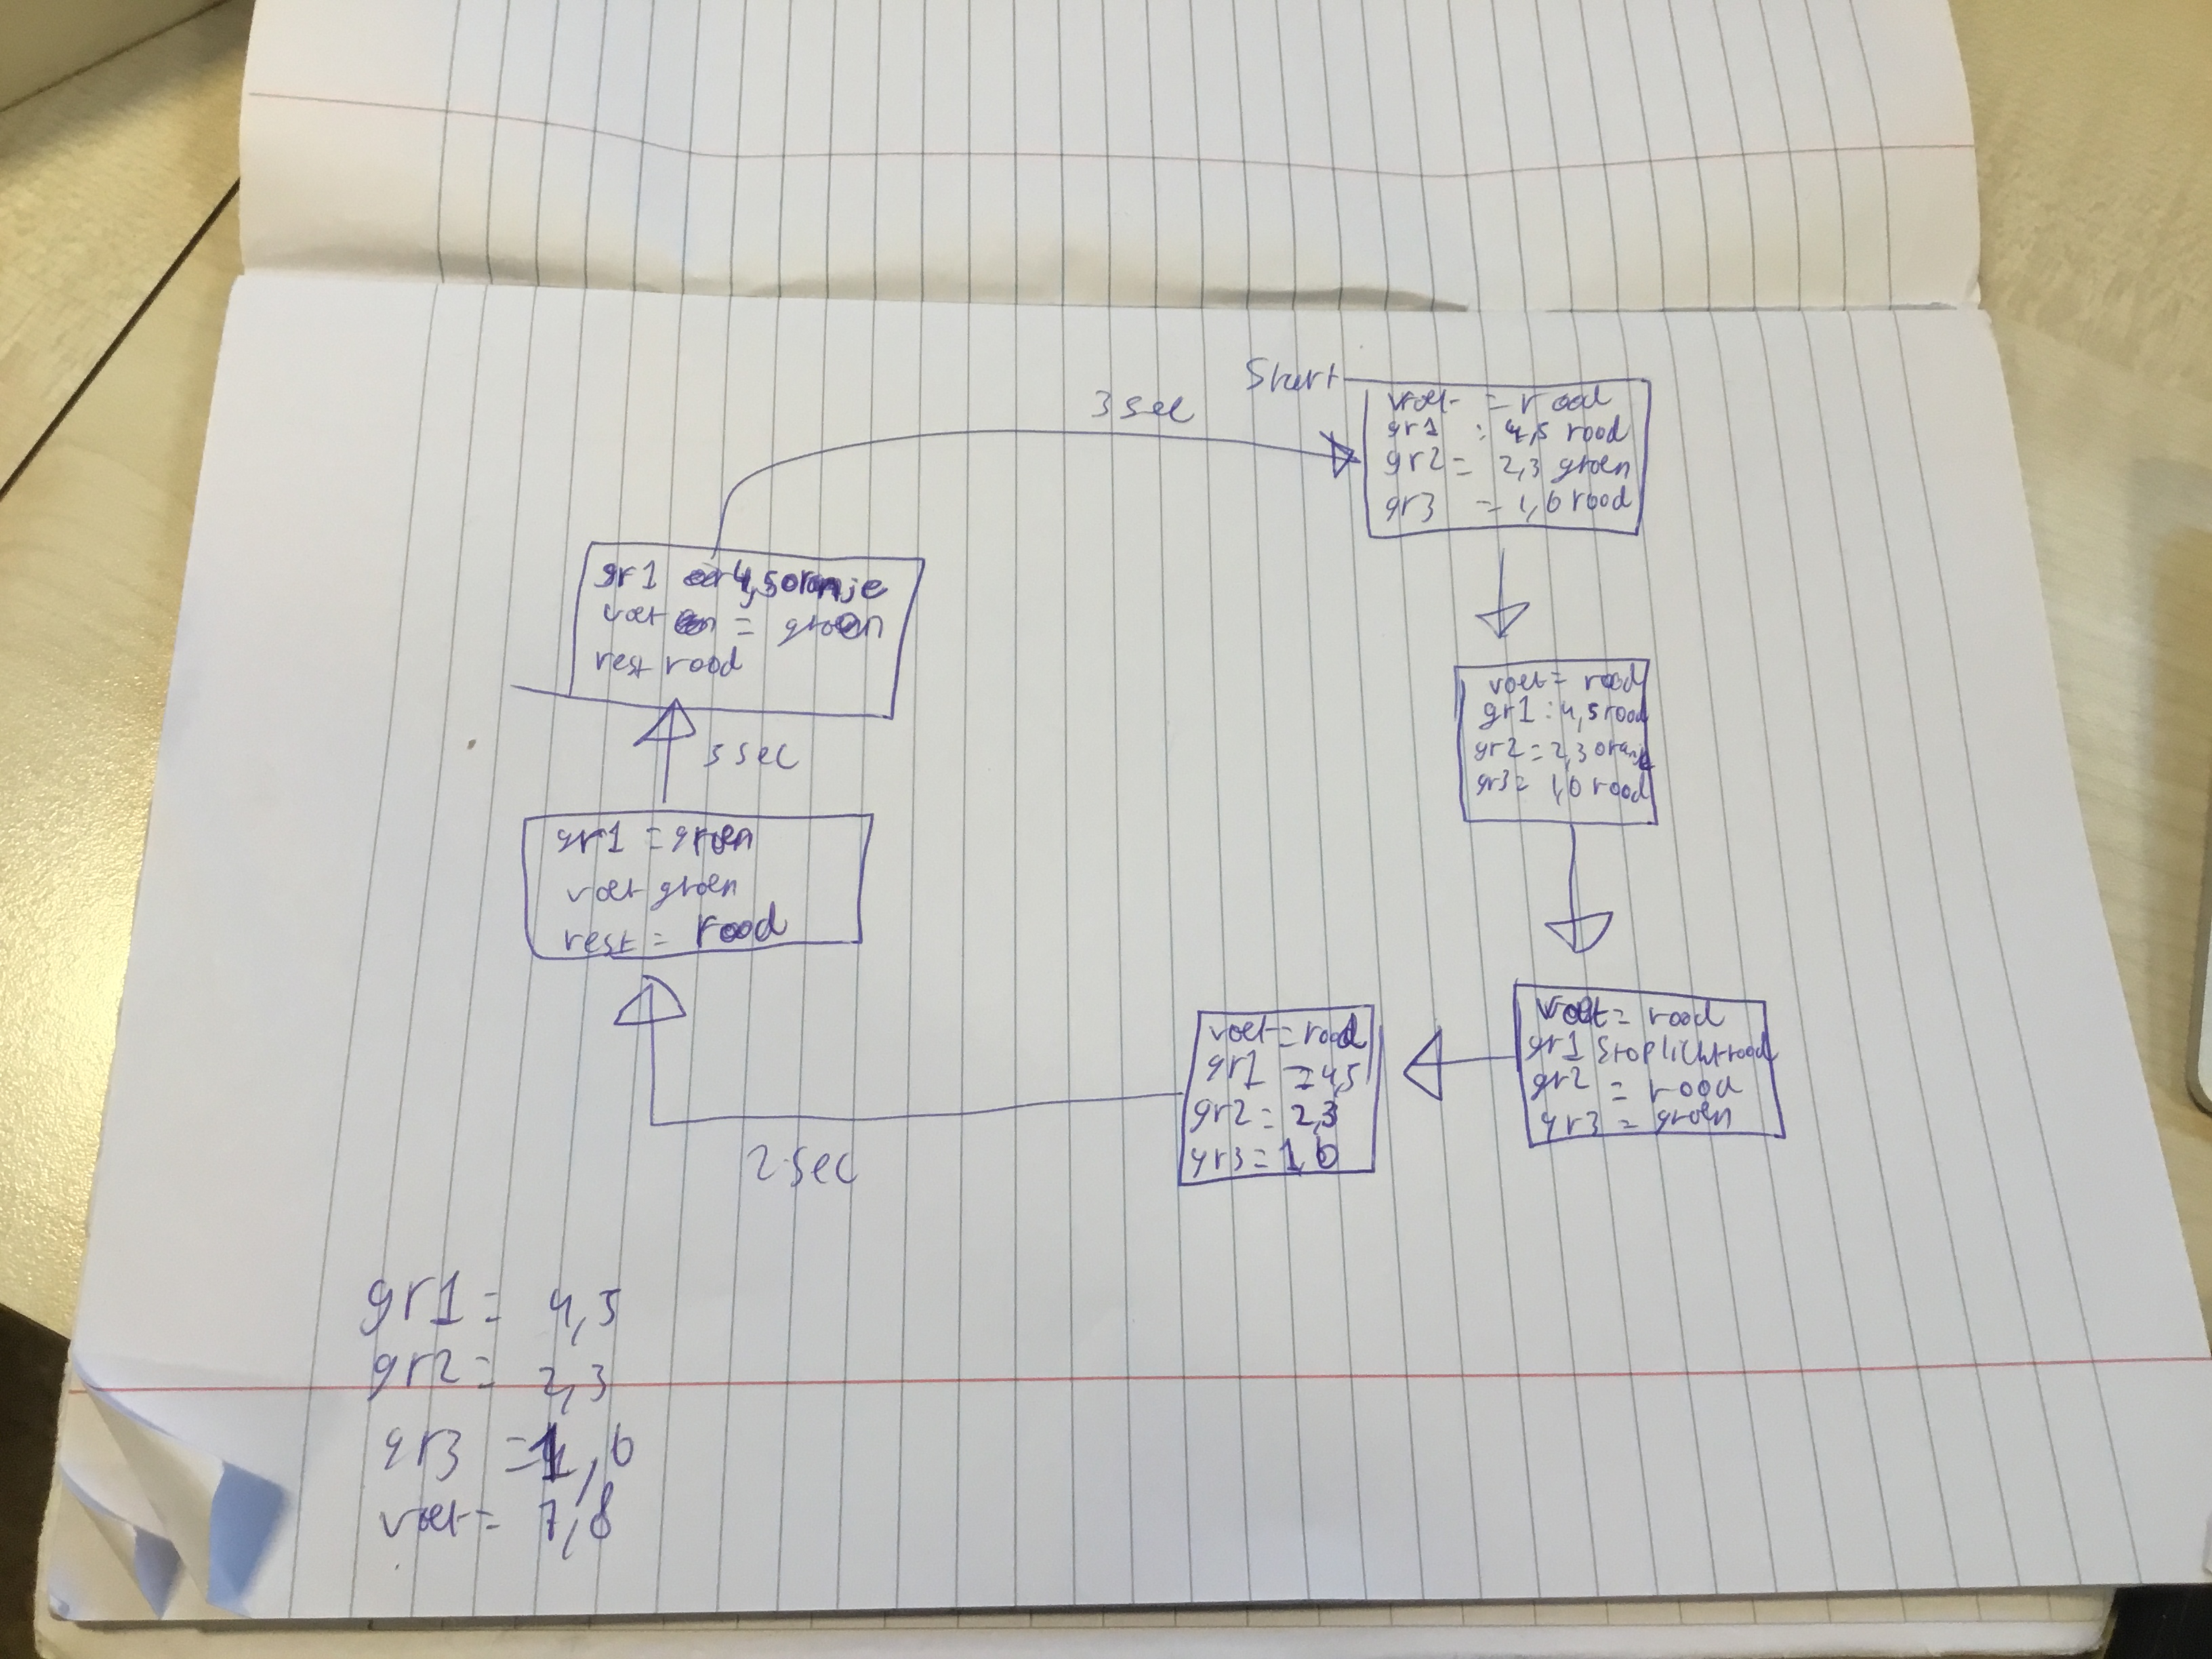 Start
voet = rood
gr1 : 4,5 rood
gr2 = 2,3 groen
gr3 = 1,6 rood
voet = rood
gr1 : 4,5 rood
gr2 = 2,3 oranje
gr3 = 1,6 rood
voet = rood
gr1 stoplicht rood
gr2 = rood
gr3 = groen
voet = rood
gr1 = 4,5
gr2 = 2,3
gr3 = 1,6
2 sec
gr1 = groen
voet groen
rest = rood
3 sec
gr1 4,5 oranje
voet = groen
rest rood
3 sec
gr1 = 4,5
gr2 = 2,3
gr3 = 1,6
voet = 7,8